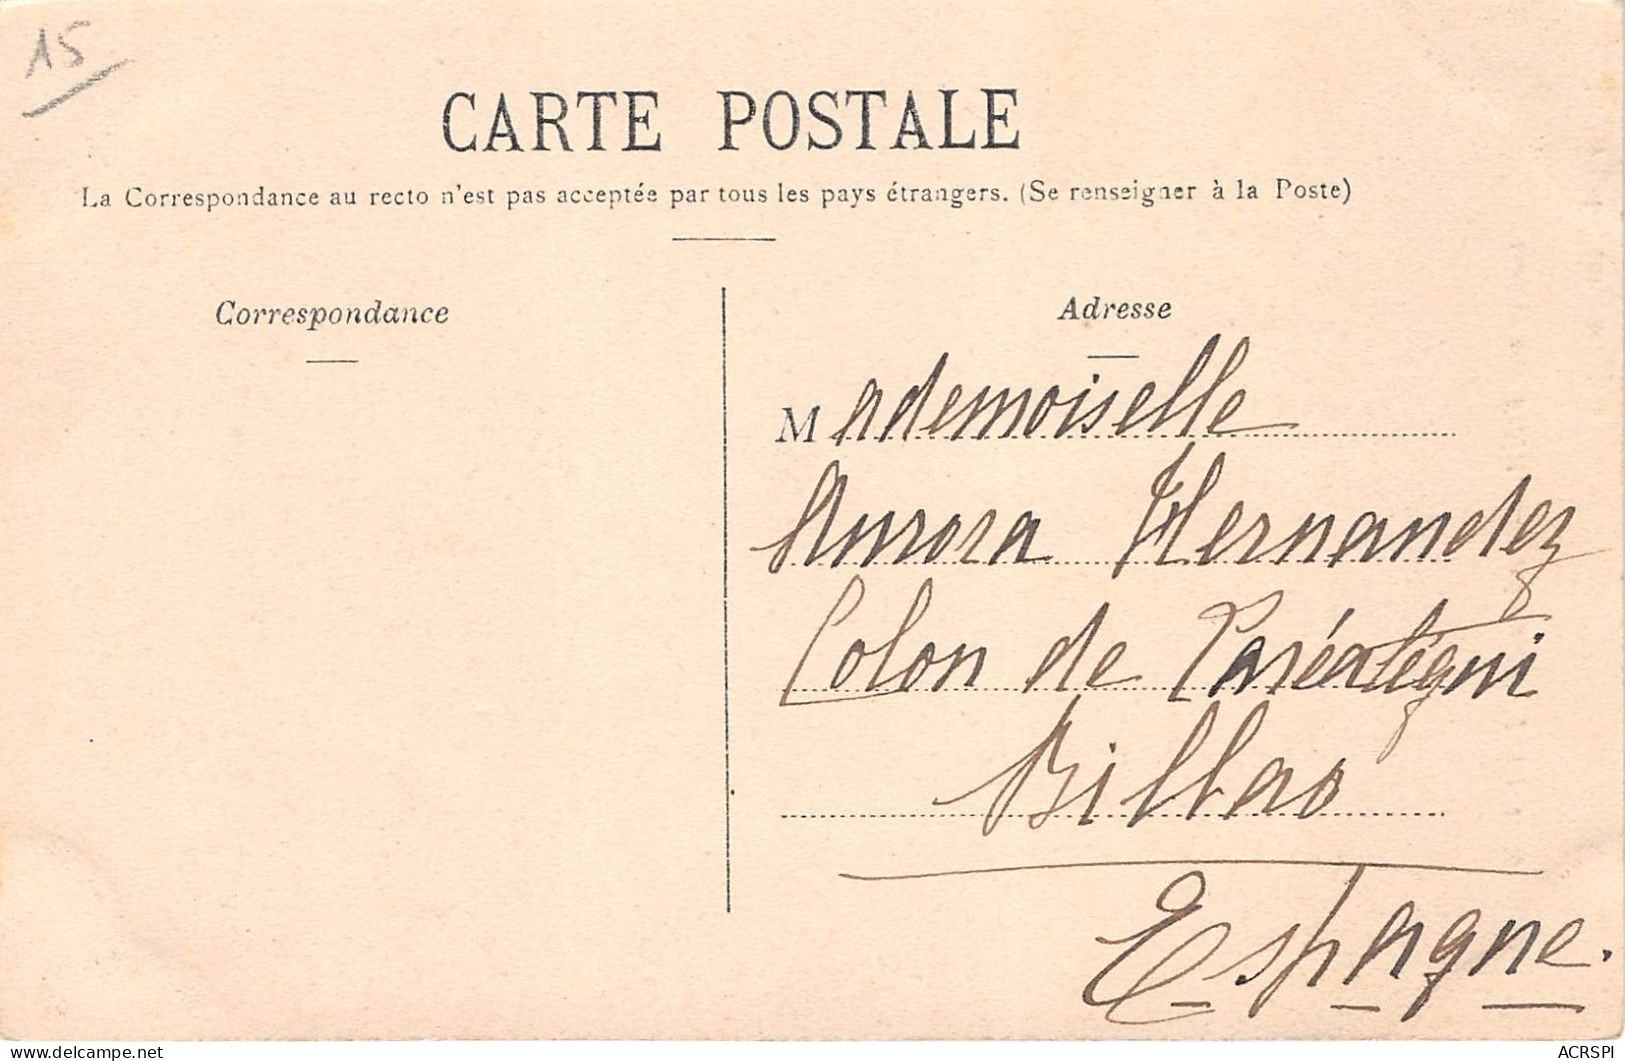 15
CARTE POSTALE
La Correspondance au recto n'est pas acceptée par tous les pays étrangers. (Se renseigner à la Poste)
Correspondance
Adresse
Mademoiselle
Aurora Hernandez
Colon de Laréatégui
Bilbao
Espagne.
delcampe.net
ACRSPI